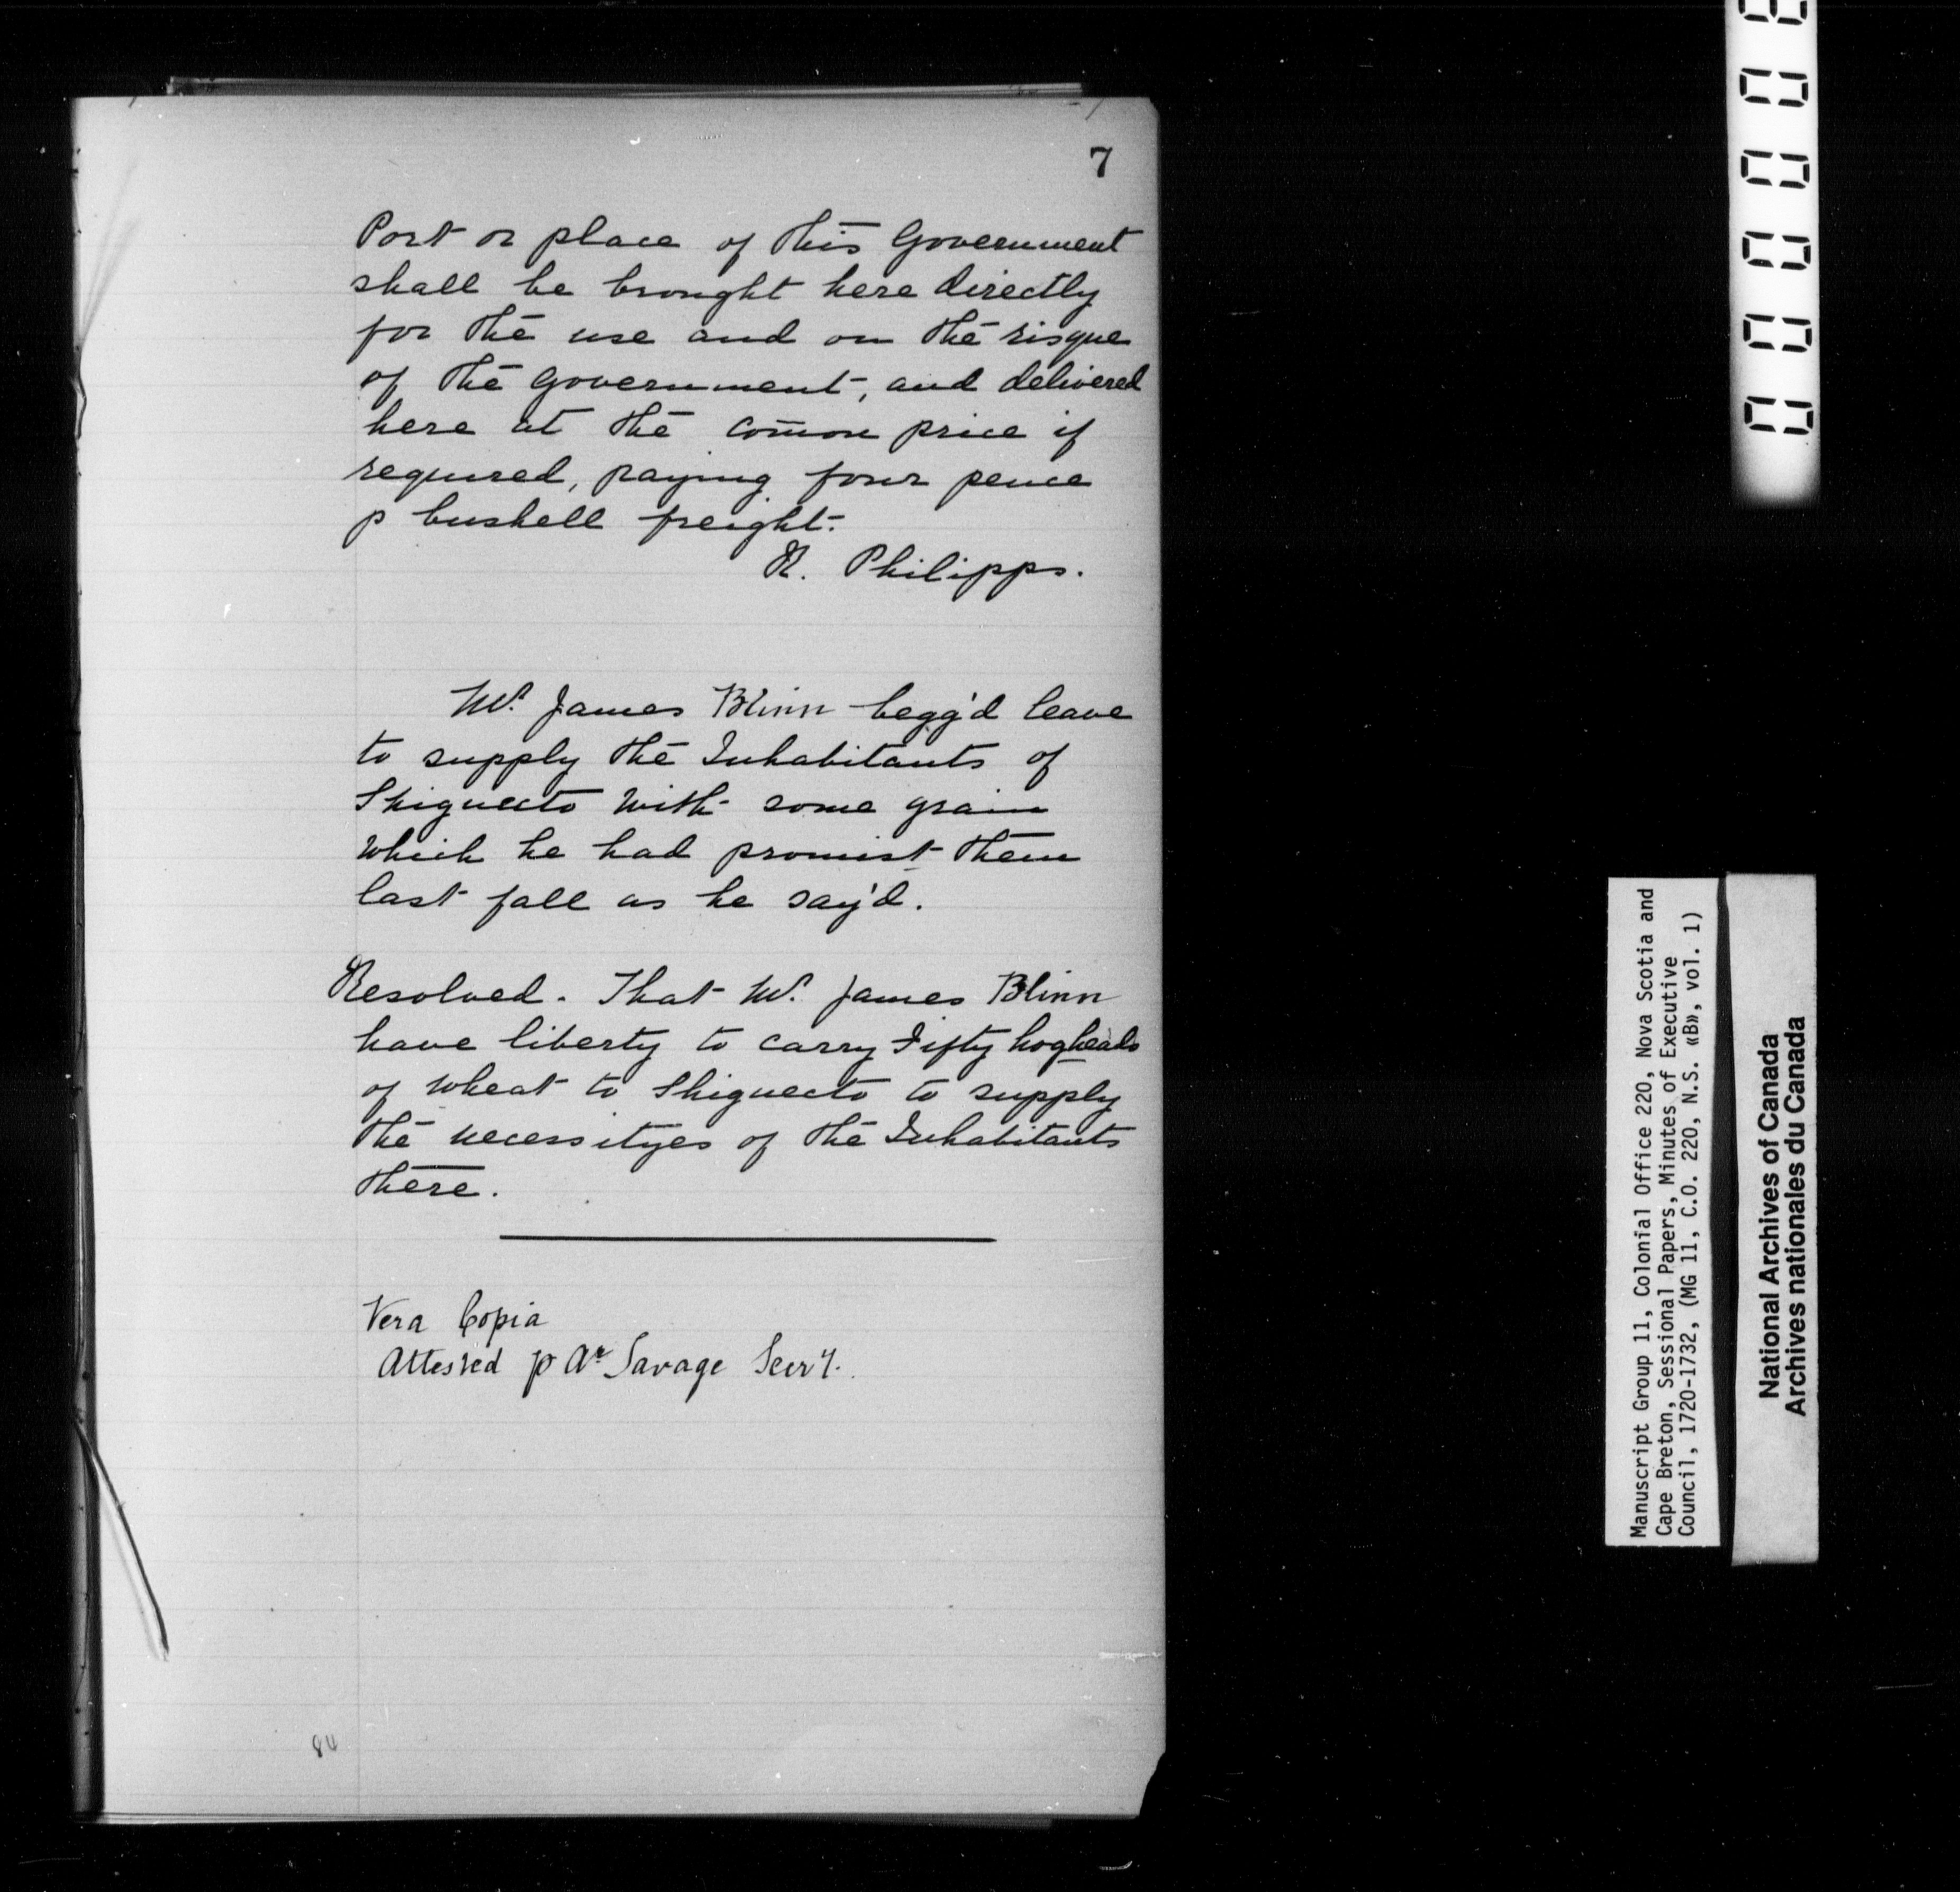 7
Port or place of this Government
shall be brought here directly
for the use and on the risque
of the Government, and delivered
here at the com̄on price if
required, paying four pence
p bushell freight.
R. Philipps.
Mr. James Blinn begg'd leave
to supply the Inhabitants of
Shignecto with some grain
which he had promist them
last fall as he say'd.
Resolved. That Mr. James Blinn
have liberty to carry Fifty hogheads
of wheat to Shignecto to supply
the necessityes of the Inhabitants
there.
Vera Copia
Attested p Ar Savage Secry.
84
Manuscript Group 11, Colonial Office 220, Nova Scotia and
Cape Breton, Sessional Papers, Minutes of Executive
Council, 1720-1732, (MG 11, C.O. 220, N.S. «B», vol. 1)
National Archives of Canada
Archives nationales du Canada